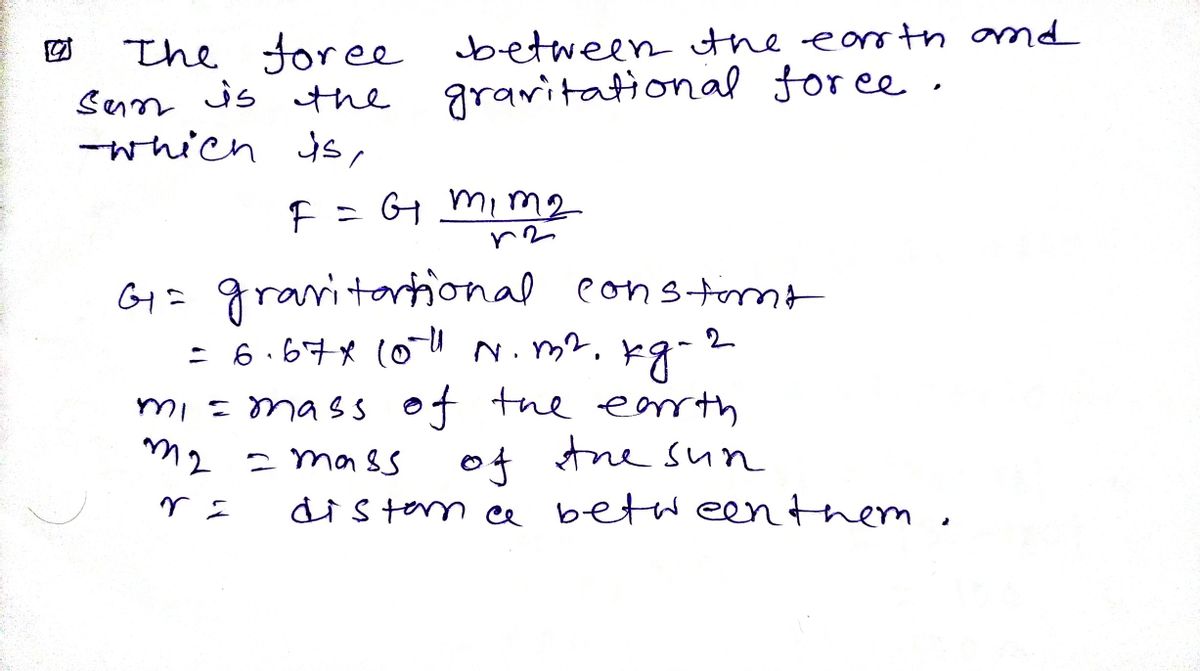 The force between the earth and
sun is the gravitational force.
which is,
F = G m₁m₂/r²
G = gravitational constant
= 6.67 × 10⁻¹¹ N.m². kg-2
m₁ = mass of the earth
m₂ = mass of the sun
r = distance between them.